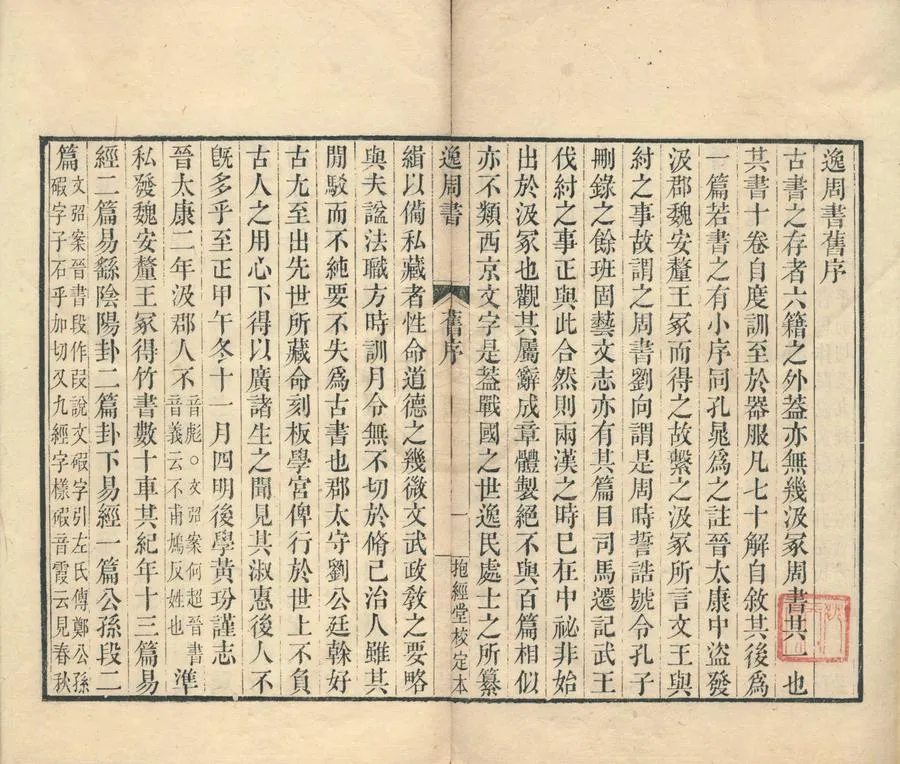 逸周書舊序
古書之存者六籍之外蓋亦無幾汲冢周書其一也
其書十卷自度訓至於器服凡七十解自敘其後爲
一篇若書之有小序同孔晁爲之註晉太康中盜發
汲郡魏安釐王冢而得之故繫之汲冢所言文王與
紂之事故謂之周書劉向謂是周時誓誥號令孔子
刪錄之餘班固藝文志亦有其篇目司馬遷記武王
伐紂之事正與此合然則兩漢之時已在中祕非始
出於汲冢也觀其屬辭成章體製絕不與百篇相似
亦不類西京文字是葢戰國之世逸民處士之所纂
逸周書 舊序 一 抱經堂校定本
緝以備私藏者性命道德之幾微文武政敎之要略
與夫諡法職方時訓月令無不切於脩己治人雖其
閒駁而不純要不失爲古書也郡太守劉公廷榦好
古尤至出先世所藏命刻板學宮俾行於世上不負
古人之用心下得以廣諸生之聞見其淑惠後人不
旣多乎至正甲午冬十一月四明後學黃玠謹志
晉太康二年汲郡人不音彪○文弨案何超晉書音義云不甫鳩反姓也準
私發魏安釐王冢得竹書數十車其紀年十三篇易
經二篇易繇陰陽卦二篇卦下易經一篇公孫段二
篇文弨案晉書段作叚說文碬字引左氏傳鄭公孫碬字子石乎加切又九經字樣碬音霞云見春秋